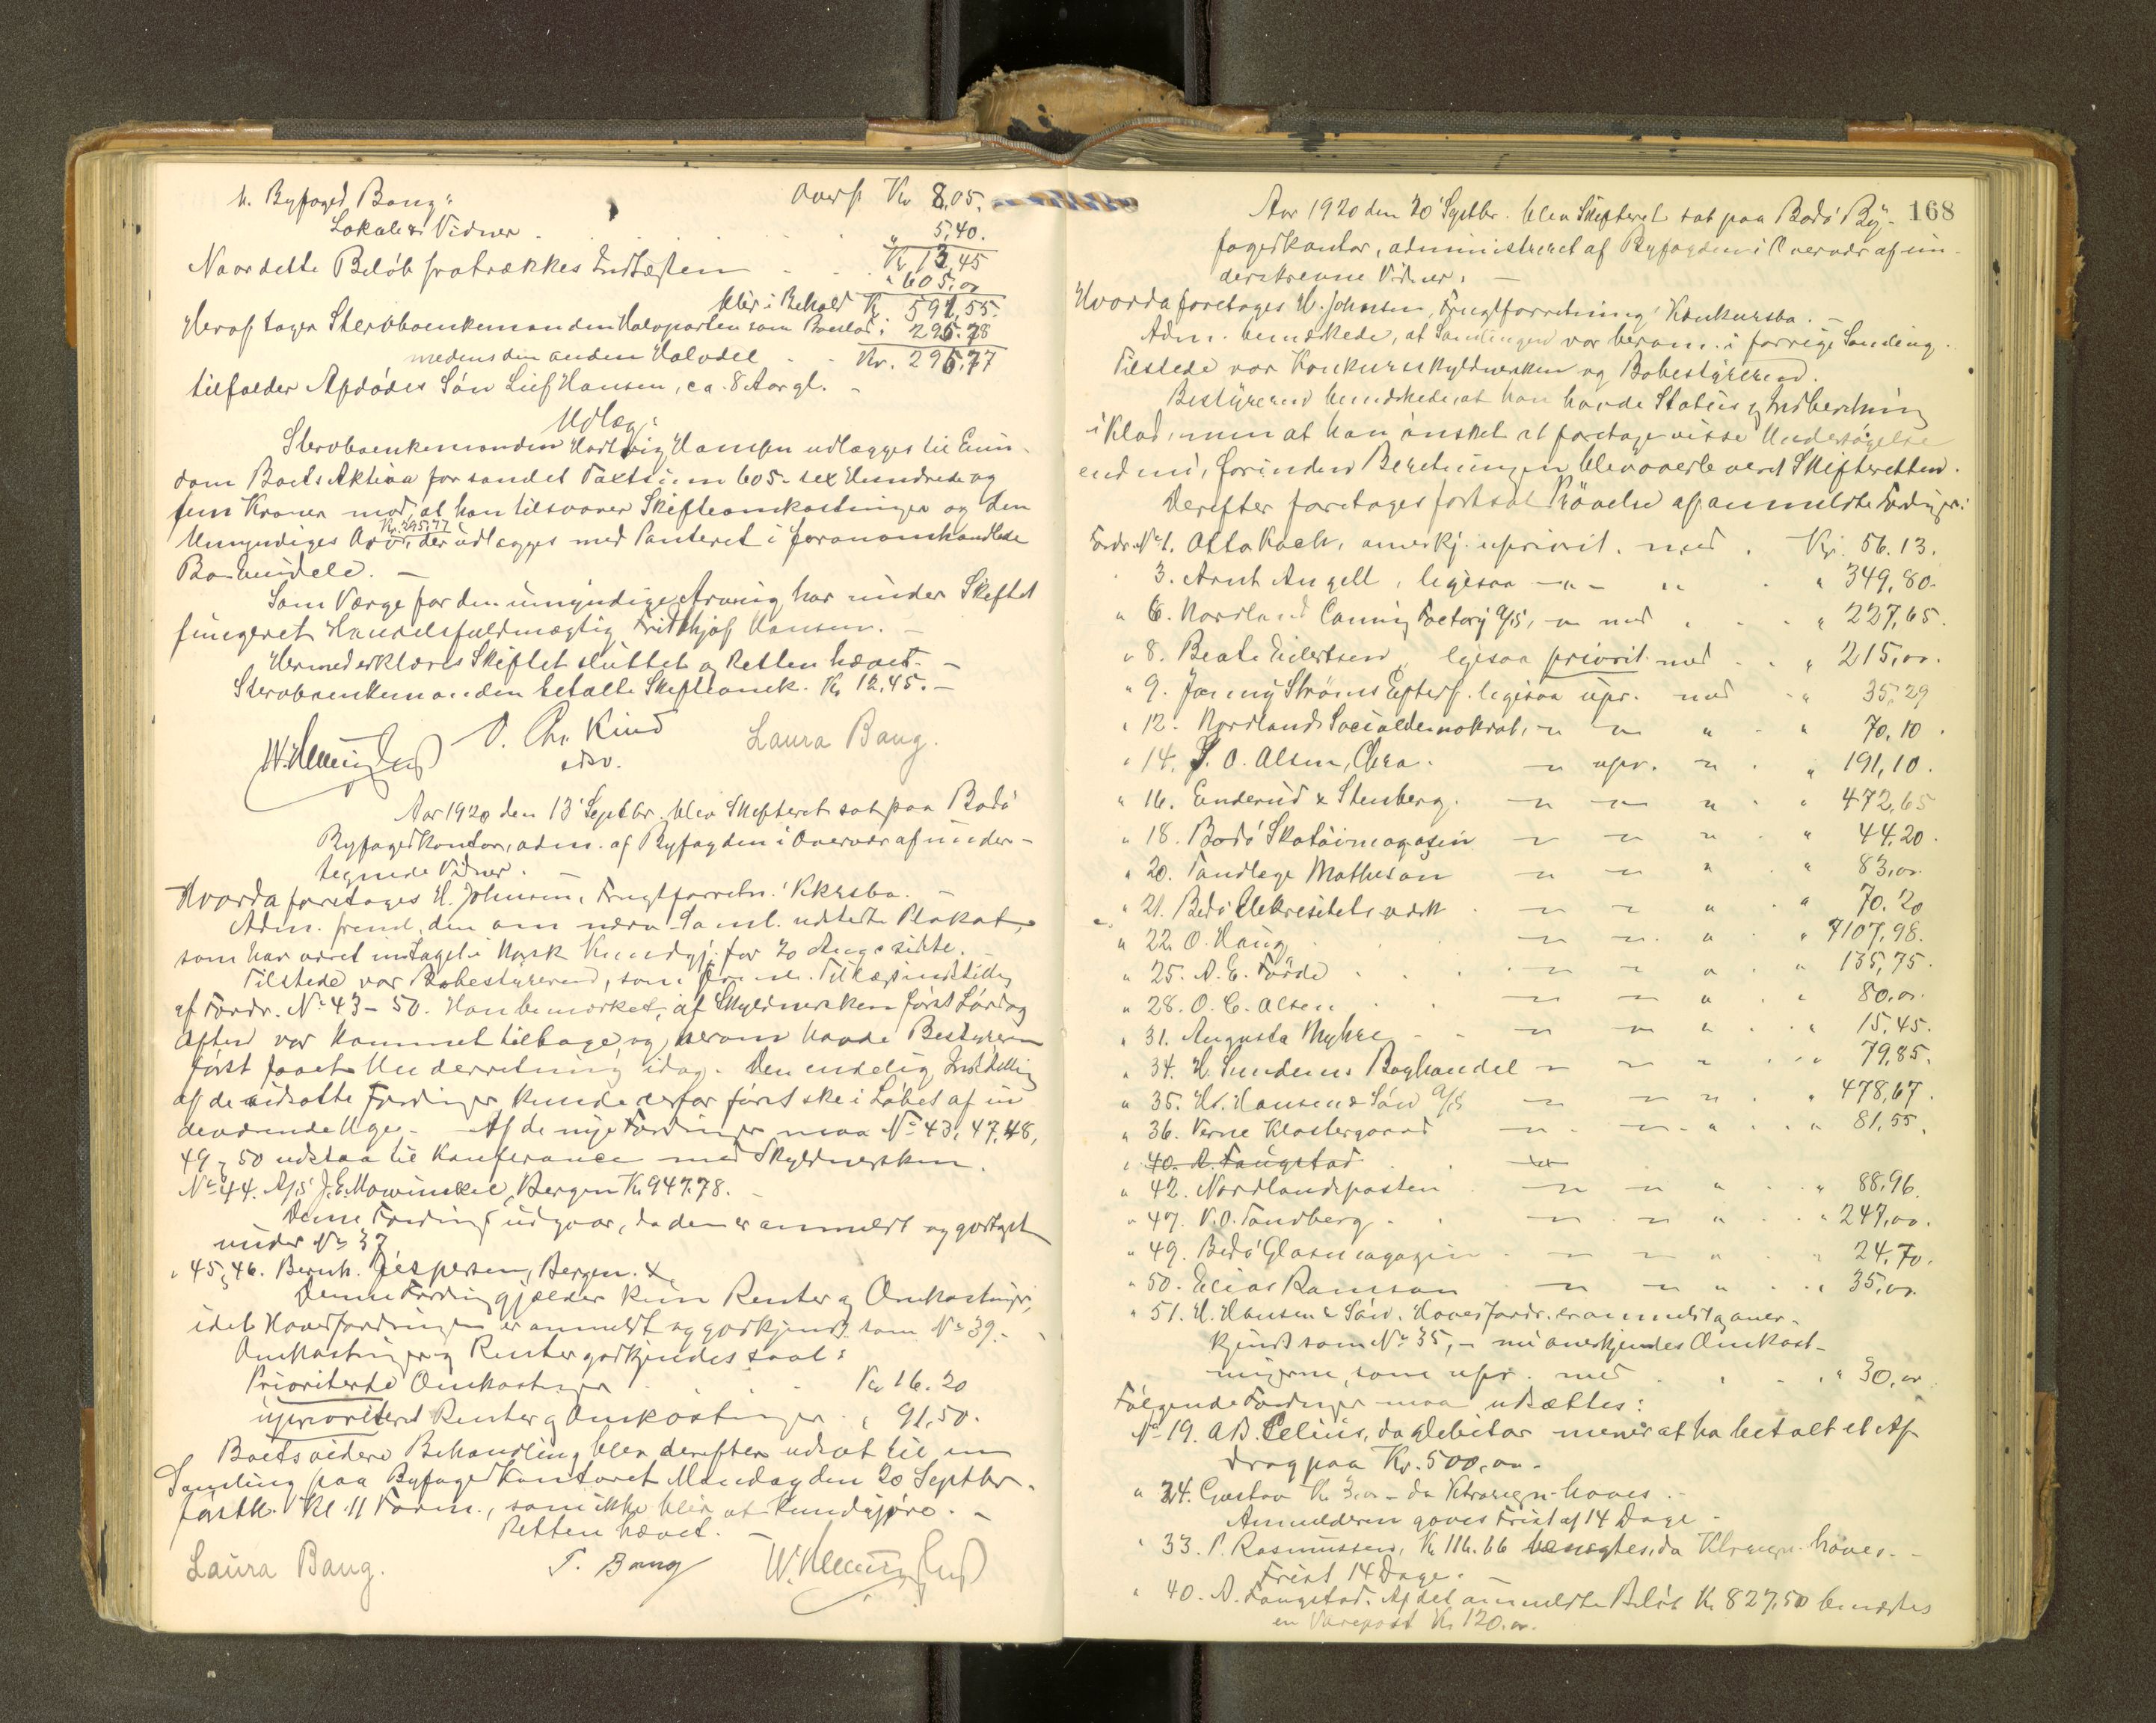 t. Byfoged Bang: Overf. Kr 8,05.
Lokale & Vidner . . . . . . " 5,40.
Kr 13,45
Naar dette Beløb fratrækkes Indtægten . . . " 605,00
blir i Behold Kr 591,55.
Heraf tager Stervboenkemanden Halvparten som Boeslod: 295.78
medens den anden Halvdel . . Kr. 295,77
tilfalder Afdødes Søn Leif Hansen, ca. 8 Aar gl. –
Udlæg:
Stervboenkemanden Hartvig Hansen udlægges til Eien-
dom Boets Aktiva for samlet Taxtsum 605 - sex Hundrede og
fem Kroner mod, at han tilsvarer Skifteomkostninger og den
Umyndiges Arv, Kr. 295,77 der udlægges med Panteret i foranomhandlede
Bo-Activdele. –
Som Værge for den umyndige Arving har under Skiftet
fungeret Handelsfuldmægtig Fridthjof Hansen. –
Hermed erklæres Skiftet sluttet og Retten hævet. –
Stervboenkemanden betalte Skifteomk. Kr 12,45. –
O. Chr. Rind Laura Bang.
Aar 1920 den 13 Septbr. blev Skifteret sat paa Bodø
Byfogedkontor, adm. af Byfogden i Overvær af under-
tegnede Vidner. –
Hvorda foretages H. Johnsen, Frugtforretn.' Kkrsbo. –
Adm. freml. den om nærv. Saml. udstedte Plakat,
som har været indtaget i Norsk Kundgj. for 20 Aug. sidste.
Tilstede var Bobestyreren, som freml. Tillægsindstilling
af Fordr. No 43 – 50. Han bemærket, at Skyldnersken først Lørdag
Aften var kommet tilbage, og herom havde Bestyreren
først faaet Underretning idag. Den endelig Indstilling
af de udsatte Fordringer kunde derfor først ske i Løbet af in
deværende Uge. – Af de nye Fordringer maa No 43, 47, 48,
49 & 50 udstaa til Konferance med Skyldnersken.
No 44. A/S J. E. Mowinckel, Bergen Kr 947.78. –
Denne Fordring udgaar, da den er anmeldt og godtaget
under No 37
" 45 & 46. Bernh. Jespersen, Bergen.
Denne Fordring gjælder kun Renter og Omkostninger,
idet Hovedfordringen er anmeldt og godkjendt som No 39. –
Omkostninger og Renter godkjendes saal:
Prioriterte Omkostninger . . . . Kr 16.20
uprioriteret Renter og Omkostninger . " 91,50.
Boets videre Behandling blev derefter udsat til en
Samling paa Byfogedkontoret Mandag den 20 Septbr.
førstk. Kl. 11 Form., som ikke blir at kundgjøre. –
Retten hævet. –
Laura Bang. T. Bang
168
Aar 1920 den 20 Septbr. blev Skifteret sat paa Bodø By-
fogedkontor, administreret af Byfogden i Overvær af un-
derskrevne Vidner. –
Hvorda foretages H. Johnsen, Frugtforretning' Konkursbo. –
Adm. bemærkede, at Samlingen var beram. i forrige Samling.
Tilstede var Konkursskyldnersken og Bobestyreren.
Bestyreren bemærkede, at han havde Status og Indberetning
i Klad, men at han ønsket at foretage visse Undersøgelse
endnu, forinden Beretningen blev overleveret Skifteretten.
Derefter foretages fortsat Prøvelse af anmeldte Fordringer:
Fordr. No 1. Otto Koch, anerkj. upriorit. med . Kr. 56.13.
" 3. Arnt Angell, ligesaa -"- " . " 349,80.
" 6. Nordland Canning Factory A/S, -"- med . . . " 227,65.
" 8. Beate Eilertsen, ligesaa priorit. med . . " 215,00.
" 9. Jonny Strøms Efterf. ligesaa upr. med . " 35,29
" 12. Nordlands Socialdemokrat, -"- -"- " . " 70,10.
" 14. S. O. Alsen, Chra. -"- upr. -"- . " 191,10.
" 16. Enderud & Stenberg. -"- -"- " . " 472,65
" 18. Bodø Skotøimagasin -"- -"- " . " 44,20.
" 20. Tandlæge Matheson -"- -"- " . " 83,00.
" 21. Bodø Elekricitetsværk -"- -"- " . " 70.20
" 22. O. Haug -"- -"- " . " 7107,98.
" 25. A. E. Førde . . . -"- -"- " . " 135,75.
" 28. O. C. Olsen . . -"- -"- " . " 80,00.
" 31. Augusta Myhre – . -"- -"- " . " 15,45.
" 34. H. Sundems Boghandel -"- -"- " . " 79,85.
" 35. Hr. Hansen & Søn A/S -"- -"- " . " 478,67.
" 36. Verne Klostergaard -"- -"- " . " 81,55.
" 40. A. Faugstad
" 42. Nordlandsposten -"- -"- " . " 88,96.
" 47. N. O. Sandberg . . -"- -"- " . " 247,00.
" 49. Bodø Glasmagazin . -"- -"- " . " 24,70.
" 50. Elias Ramson -"- -"- " . " 35,00.
" 51. H. Hansen & Søn. Hovedfordr. er anmeldt og aner-
kjendt som No 35, – nu anerkjendes Omkost-
ningerne, som upr. med . . . " 30,00
Følgende Fordringer maa udsættes:
No 19. A. B. Celius, da Debitor mener at ha betalt et Af-
drag paa Kr. 500,00. –
" 24. Gustav Kr 3,00 – da Ktraregn. haves. –
Anmelderen gives Frist af 14 Dage –
" 33. P. Rasmussen, Kr 116.66 benegtes, da Ktraregn. haves. –
Frist 14 Dage. –
" 40. A. Faugstad. Af det anmeldte Beløb Kr 827,50 benegtes
en Varepost Kr 120.00.